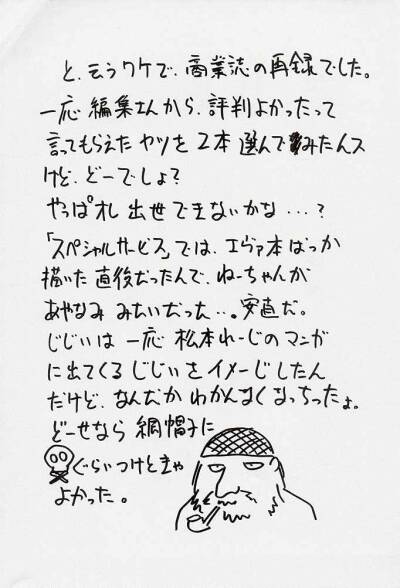 と、云うワケで、商業誌の再録でした。
一応 編集さんから、評判よかったって
言ってもらえた ヤツを 2本 選んで みたんス
けど、どーでしょ?
やっぱオレ 出世 できないかな・・・?
「スペシャルサービス」では、エヴァ本ばっか
描いた 直後だったんで、ねーちゃんが
あやなみ みたいだった・・。安直だ。
じじいは 一応 松本れーじのマンガ
に出てくる じじい を イメージしたん
だけど、なんだか わかんなくなっちったよ。
どーせなら 網帽子に
ぐらいつけときゃ
よかった。